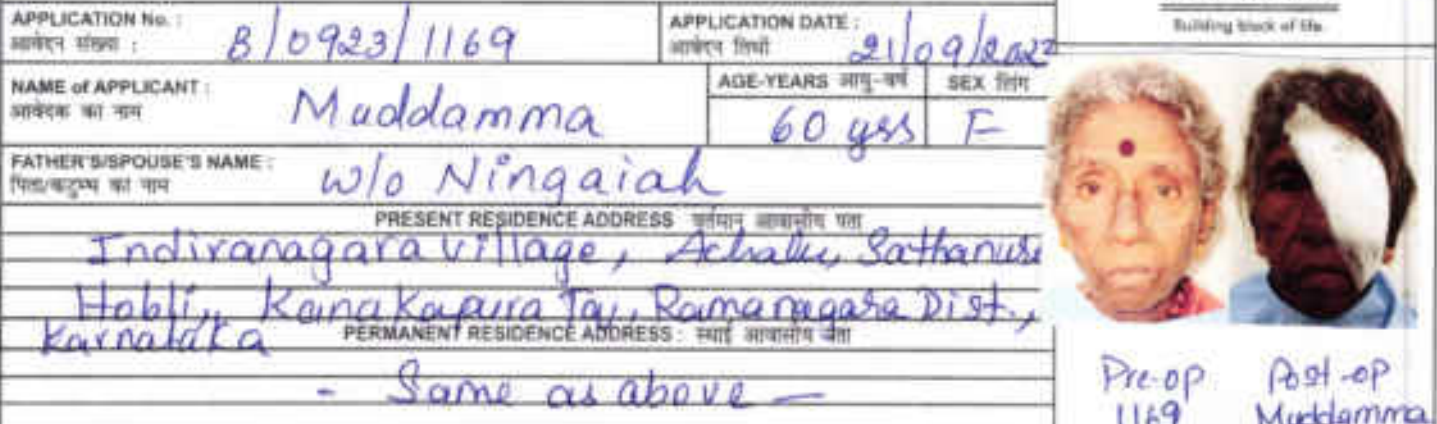 APPLICATION No. :
आवेदन संख्या : B/0923/1169
APPLICATION DATE :
आवेदन तिथी 21/09/2022
Building block of life.
NAME of APPLICANT :
आवेदक का नाम Muddamma
AGE-YEARS आयु-वर्ष
60 yrs
SEX लिंग
F
FATHER'S/SPOUSE'S NAME :
पिता/कटुम्ब का नाम w/o Ningaiah
PRESENT RESIDENCE ADDRESS वर्तमान आवासीय पता
Indiranagara village, Achalu, Sathanure
Hobli, Kanakapura Tq, Ramanagara Dist.,
Karnataka
PERMANENT RESIDENCE ADDRESS : स्थाई आवासीय पता
- Same as above -
Pre-op
1169
Post-op
Muddamma